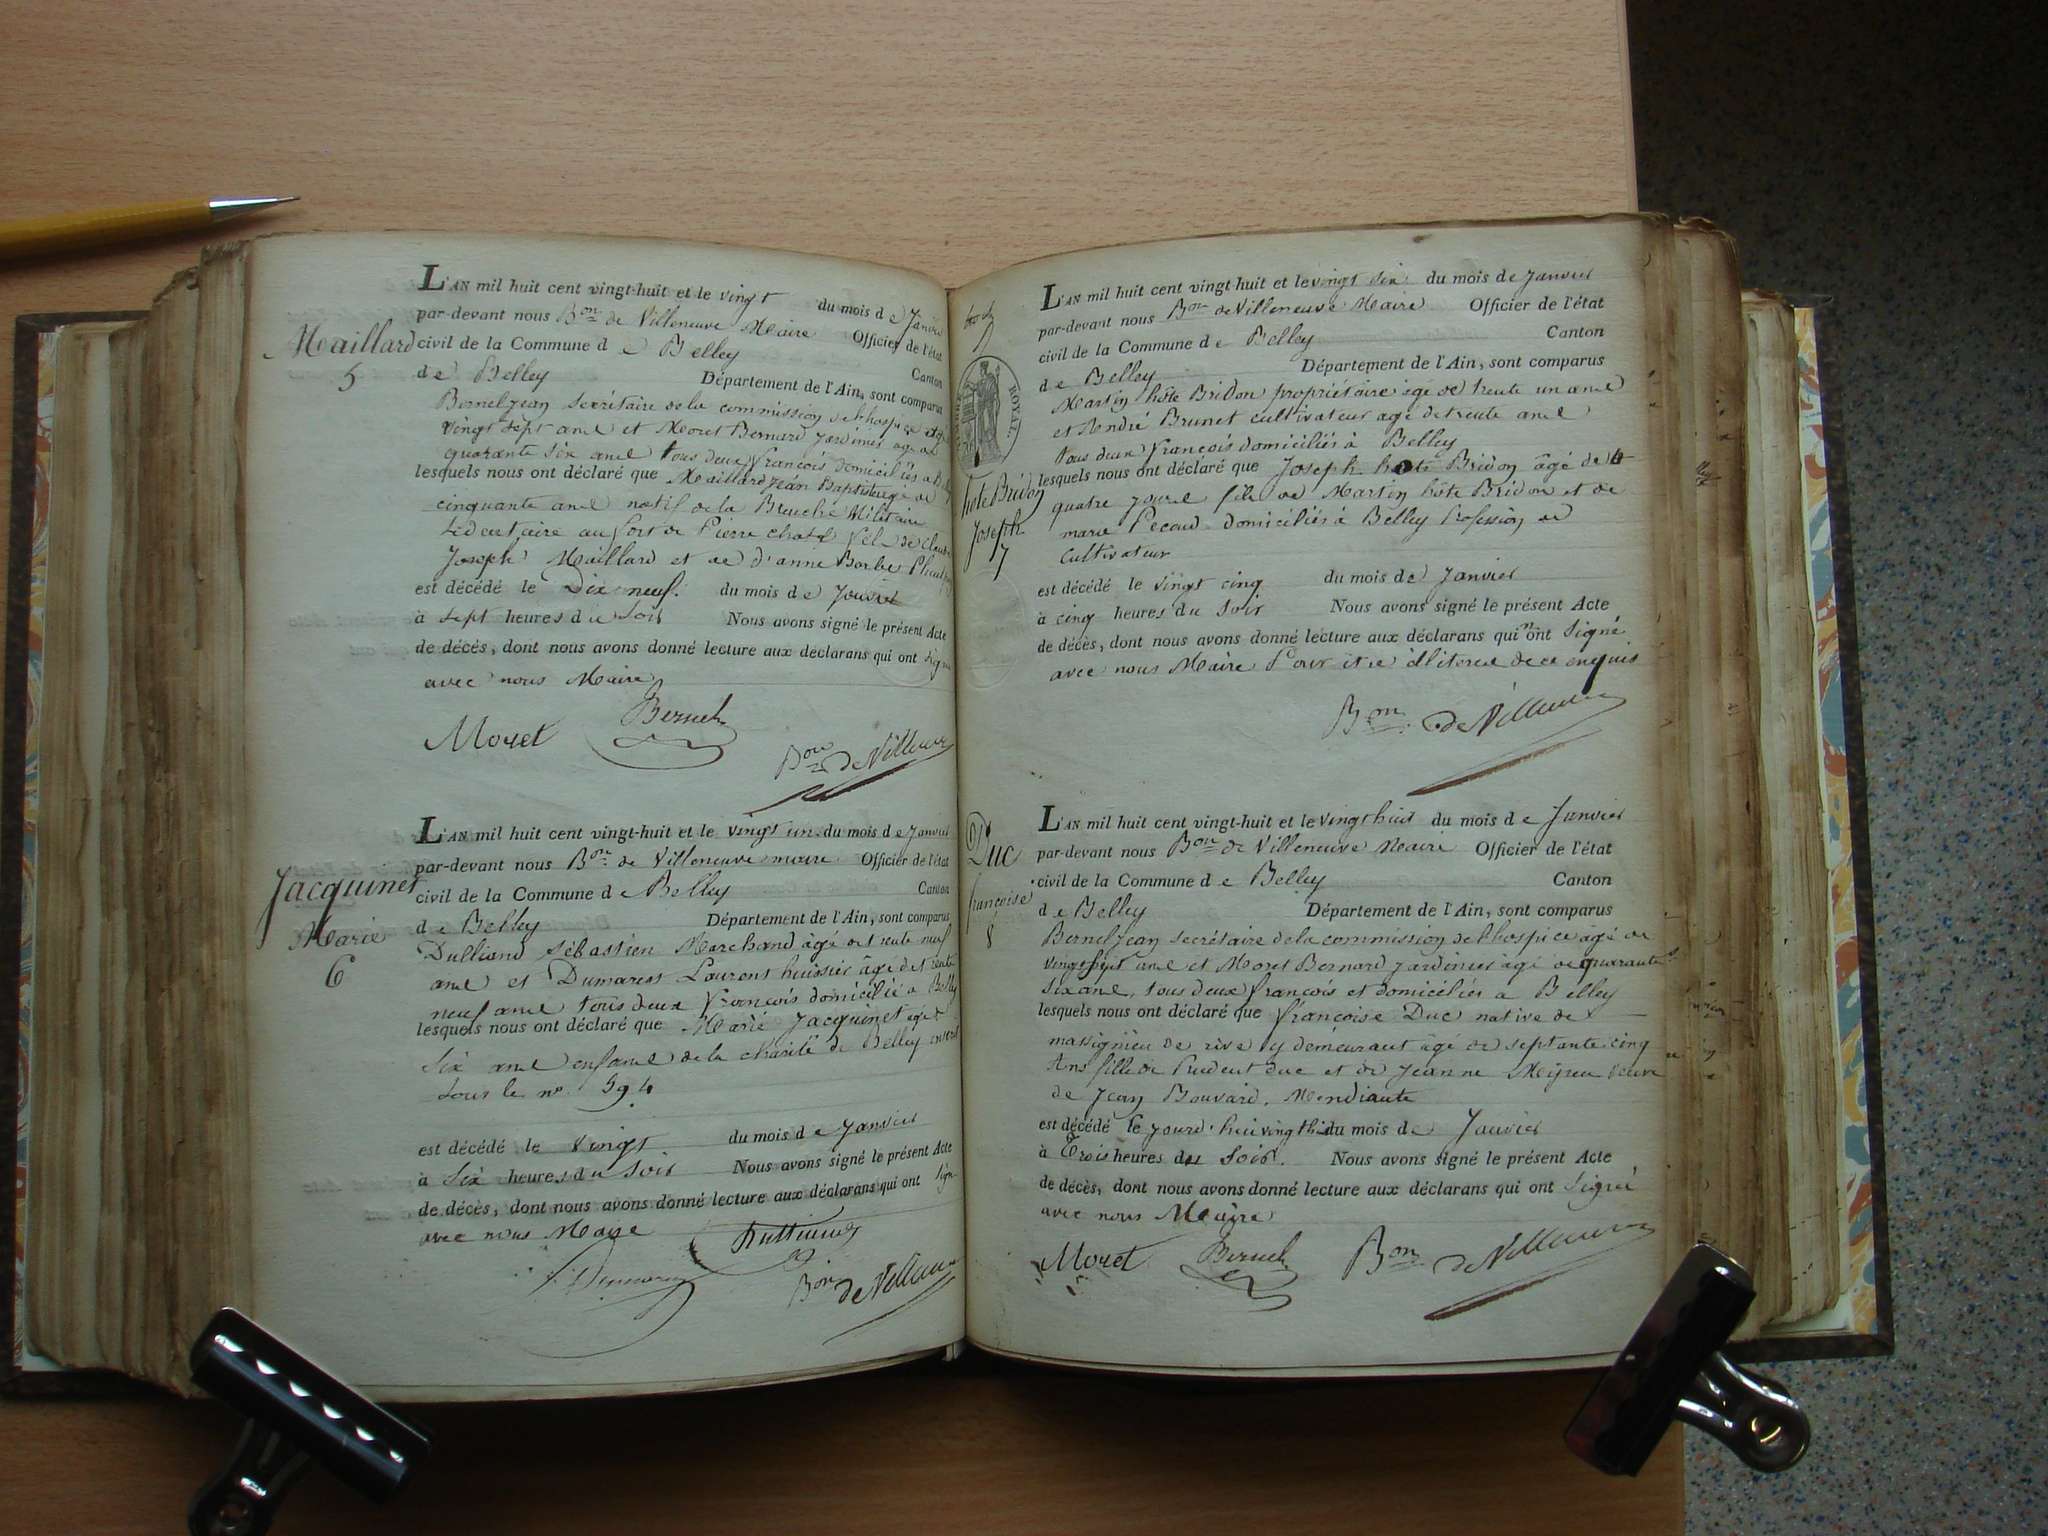 Maillard
5
L'AN mil huit cent vingt-huit et le vingt du mois de Janvier
par-devant nous Bon de Villeneuve Maire Officier de l'état
civil de la Commune de Belley Canton
de Belley Département de l'Ain, sont comparus
Bernel Jean Secrétaire de la commission de l'hospice
vingt sept ans et Moret Bernard Jardinier agé de
quarante Six ans tous deux francois domiciliés a
lesquels nous ont déclaré que Maillard Jean Baptiste agé de
cinquante ans natif de la Militaire
Sédentaire au fort de Pierre chatel fils de Claude
Joseph Maillard et de d'anne Barbe
est décédé le Dix neuf du mois de Janvier
à Sept heures du Soir Nous avons signé le présent Acte
de décès, dont nous avons donné lecture aux déclarans qui ont Signé
avec nous Maire
Moret Bernel
Bon de Villeneuve
Jacquinet
Marie
6
L'AN mil huit cent vingt-huit et le vingt un du mois de Janvier
par-devant nous Bon de Villeneuve maire Officier de l'état
civil de la Commune de Belley Canton
de Belley Département de l'Ain, sont comparus
Dulliand Sébastien Marchand âgé de trente neuf
ans et Dumarest Laurent huissier âgé de trente
neuf ans tous deux francois domicilié a Belley
lesquels nous ont déclaré que Marie Jacquinet agé de
Six ans enfans de la charité de Belley inscrit
Sous le no. 594
est décédé le Vingt du mois de Janvier
à Six heures du Soir Nous avons signé le présent Acte
de décès, dont nous avons donné lecture aux déclarans qui ont Signé
avec nous Maire Dulliand
Dumarest
Bon de Villeneuve
ROYAL
hote Bridon
Joseph
7
L'AN mil huit cent vingt-huit et le vingt Six du mois de Janvier
par-devant nous Bon de Villeneuve Maire Officier de l'état
civil de la Commune de Belley Canton
de Belley Département de l'Ain, sont comparus
Martin hôte Bridon propriétaire âgé de trente un ans
et André Brunet cultivateur agé de trente ans
tous deux francois domiciliés à Belley
lesquels nous ont déclaré que Joseph hote Bridon âgé de
quatre jours fils de Martin hôte Bridon et de
marie Pecoud domiciliés à Belley Profession de
Cultivateur
est décédé le vingt cinq du mois de Janvier
à cinq heures du Soir Nous avons signé le présent Acte
de décès, dont nous avons donné lecture aux déclarans qui n'ont Signé
avec nous Maire Pour être illiteres de ce enquis
Bon de Villeneuve
Duc
françoise
8
L'AN mil huit cent vingt-huit et le vingt huit du mois de Janvier
par-devant nous Bon de Villeneuve Maire Officier de l'état
civil de la Commune de Belley Canton
de Belley Département de l'Ain, sont comparus
Bernel Jean secrétaire de la commission de l'hospice âgé de
vingt sept ans et Moret Bernard Jardinier âgé de quarante
Six ans, tous deux francois et domiciliés a Belley
lesquels nous ont déclaré que françoise Duc native de
massignieu de rive y demeurant âgé de septante cinq
Ans fille de Prudent duc et de Jeanne Veuve
de Jean Bouvard. Mendiante
est décédé le jourd'hui vingt huit du mois de Janvier
à Trois heures du Soir. Nous avons signé le présent Acte
de décès, dont nous avons donné lecture aux déclarans qui ont Signé
avec nous Maire
Moret Bernel Bon de Villeneuve